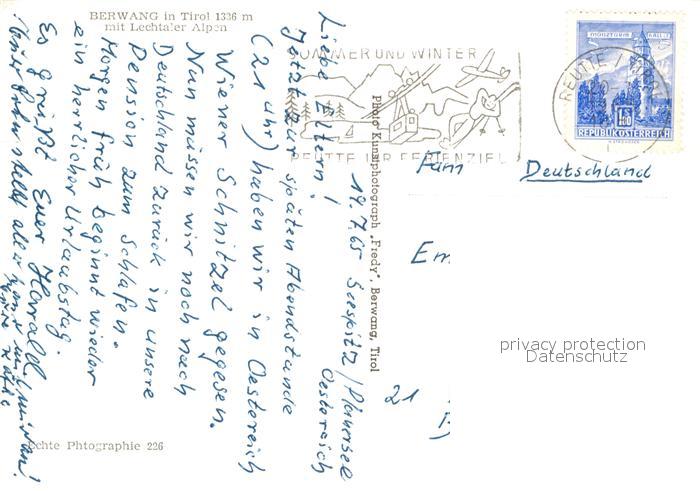 BERWANG in Tirol 1336 m
mit Lechtaler Alpen
19.7.65 Seespitz/Plansee
Oesterreich
Liebe Eltern!
Jetzt zur späten Abendstunde
(21 Uhr) haben wir in Oestereich
Wiener Schnitzel gegessen.
Nun müssen wir noch nach
Deutschland zurück in unsere
Pension zum Schlafen.
Morgen früh beginnt wieder
ein herrlicher Urlaubstag.
Es grüßt Euer Harald
Echte Phtographie 226
Photo Kunstphotograph „Fredy", Berwang, Tirol
SOMMER UND WINTER
REUTTE IHR FERIENZIEL
REUTTE
MÜNZTURM HALL
REPUBLIK ÖSTERREICH
Fam
Deutschland
Em
21
privacy protection
Datenschutz